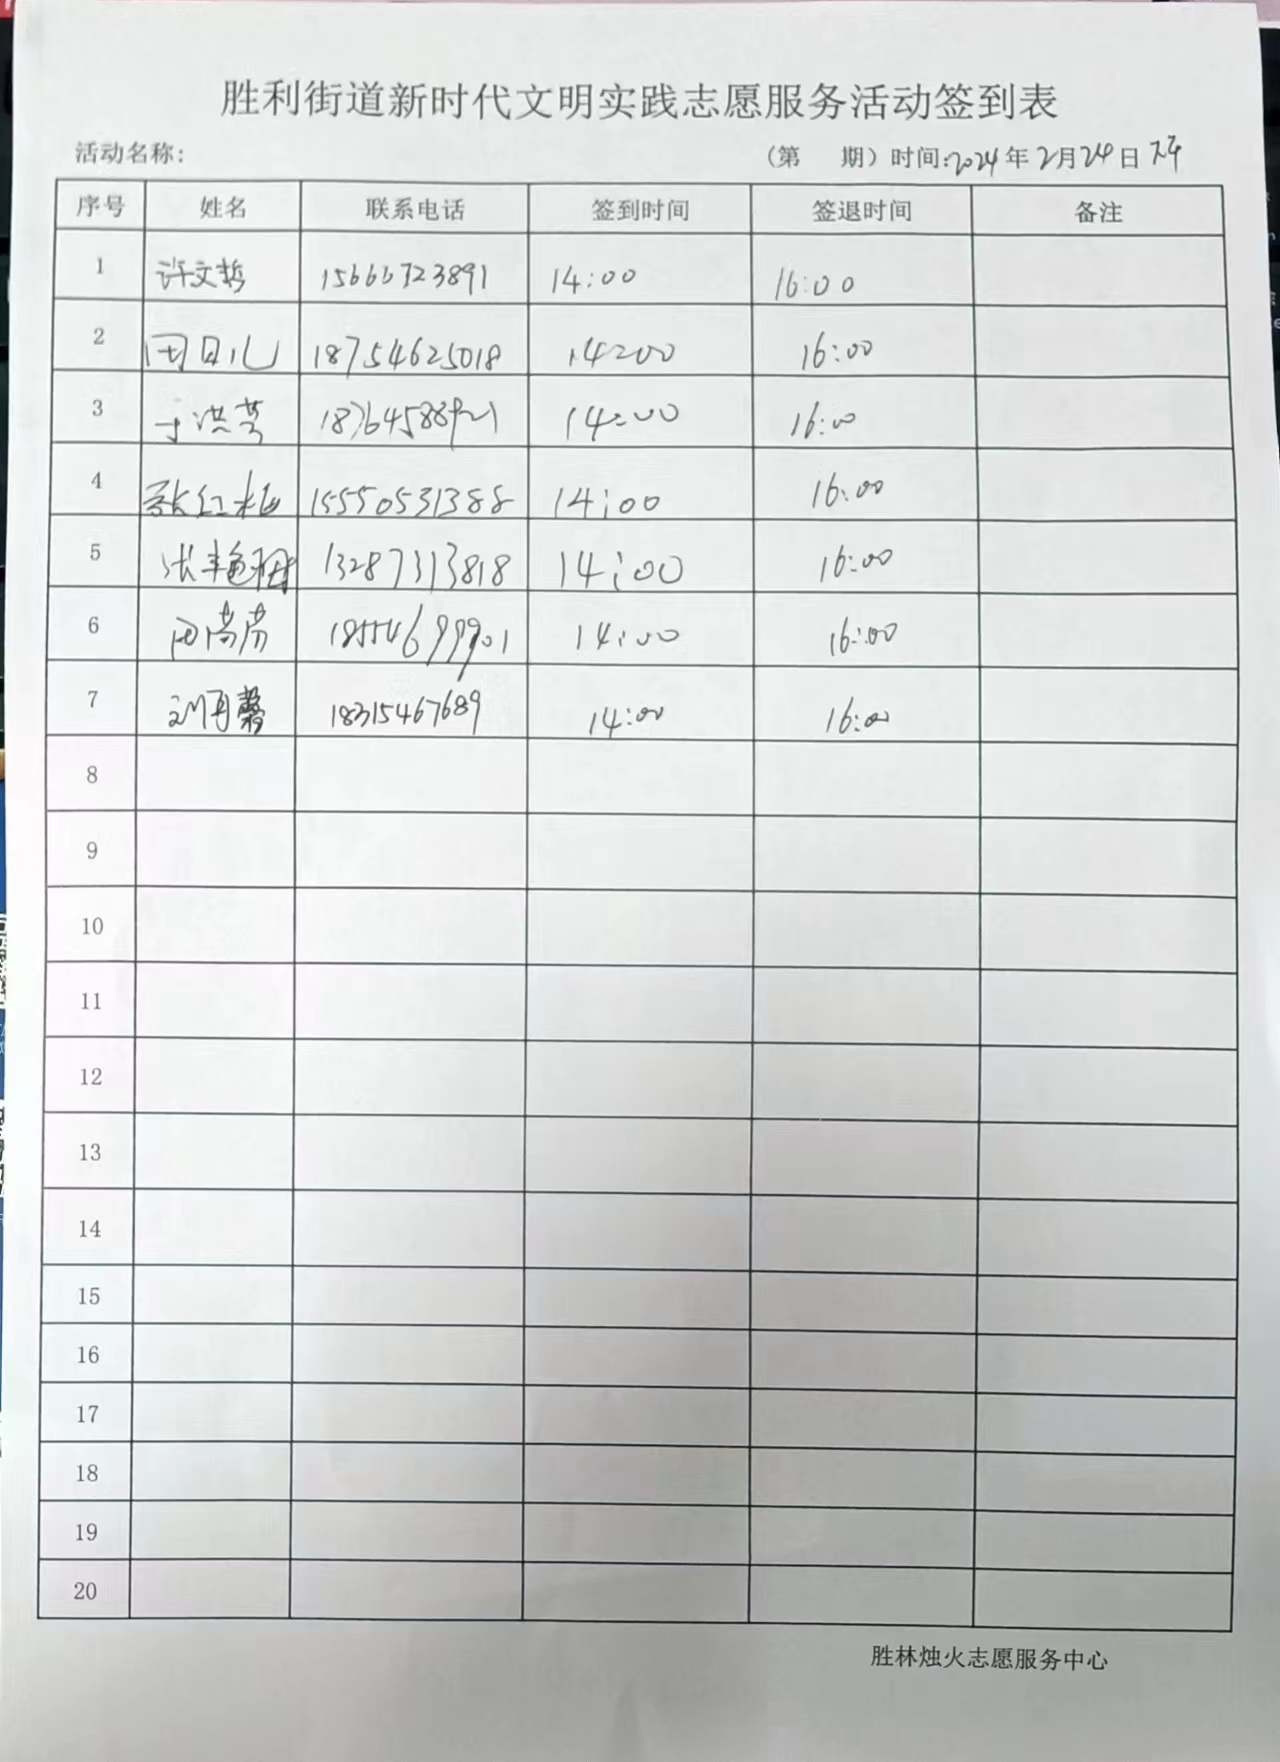 胜利街道新时代文明实践志愿服务活动签到表
活动名称: (第 期) 时间:2024年2月24日 下午
序号 姓名 联系电话 签到时间 签退时间 备注
1 许文哲 15666723891 14:00 16:00
2 田日儿 18754625018 14:00 16:00
3 于洪芹 14:00 16:00
4 张红梅 15550531388 14:00 16:00
5 张艳 13287313818 14:00 16:00
6 14:00 16:00
7 刘再馨 18315467689 14:00 16:00
8
9
10
11
12
13
14
15
16
17
18
19
20
胜林烛火志愿服务中心